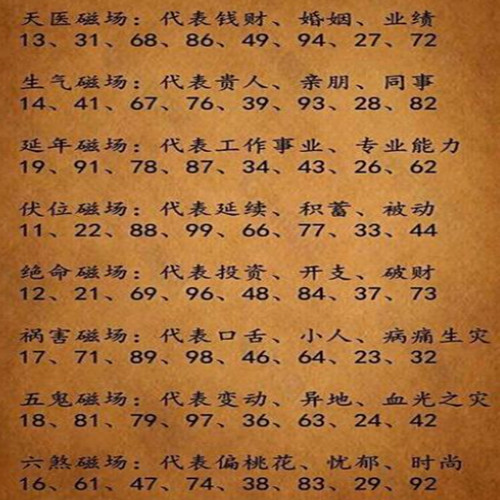 天医磁场：代表钱财、婚姻、业绩
13、31、68、86、49、94、27、72
生气磁场：代表贵人、亲朋、同事
14、41、67、76、39、93、28、82
延年磁场：代表工作事业、专业能力
19、91、78、87、34、43、26、62
伏位磁场：代表延续、积蓄、被动
11、22、88、99、66、77、33、44
绝命磁场：代表投资、开支、破财
12、21、69、96、48、84、37、73
祸害磁场：代表口舌、小人、病痛生灾
17、71、89、98、46、64、23、32
五鬼磁场：代表变动、异地、血光之灾
18、81、79、97、36、63、24、42
六煞磁场：代表偏桃花、忧郁、时尚
16、61、47、74、38、83、29、92